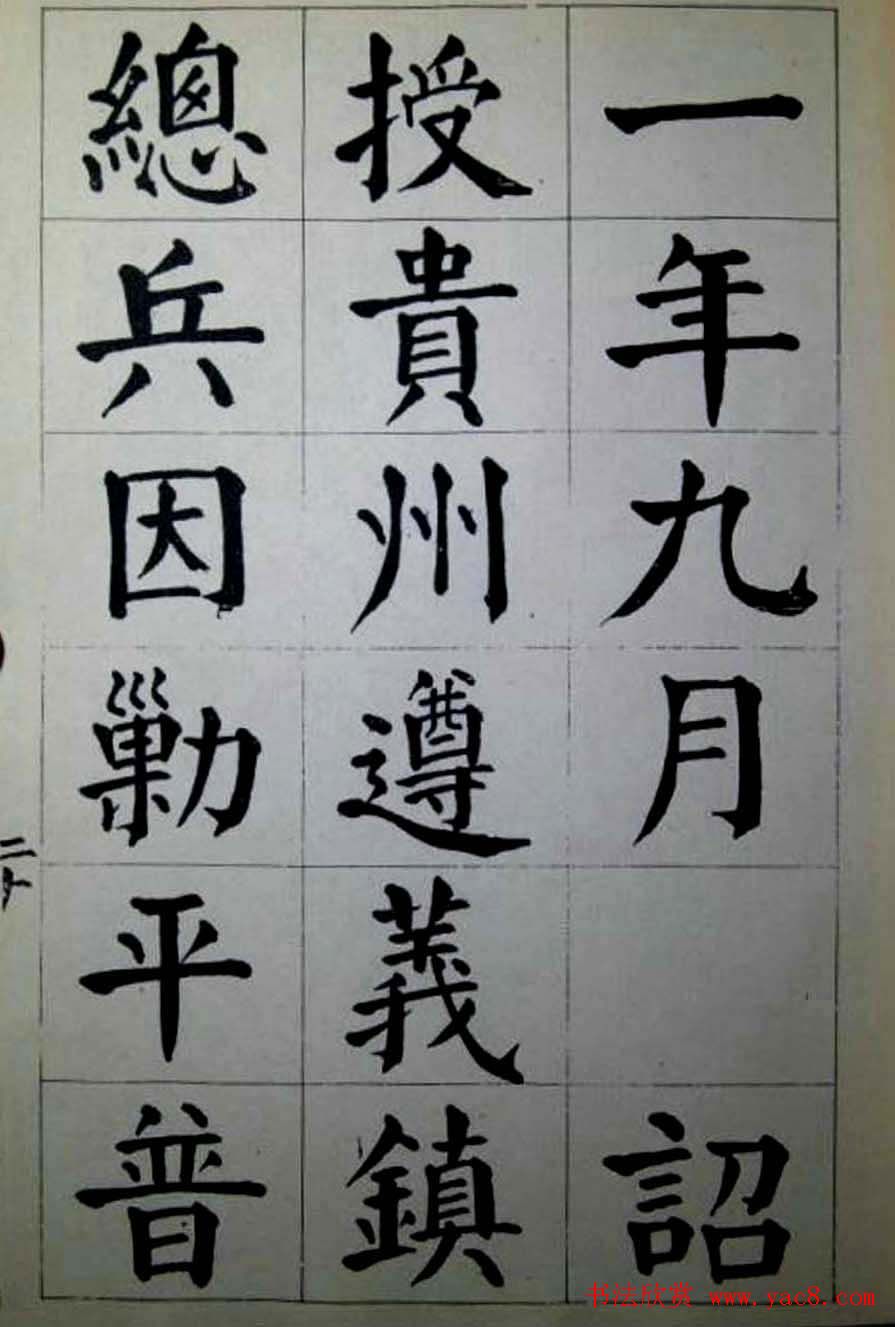 一年九月 詔
授貴州遵義鎮
總兵因勦平普
二十
书法欣赏 www.yac8.com